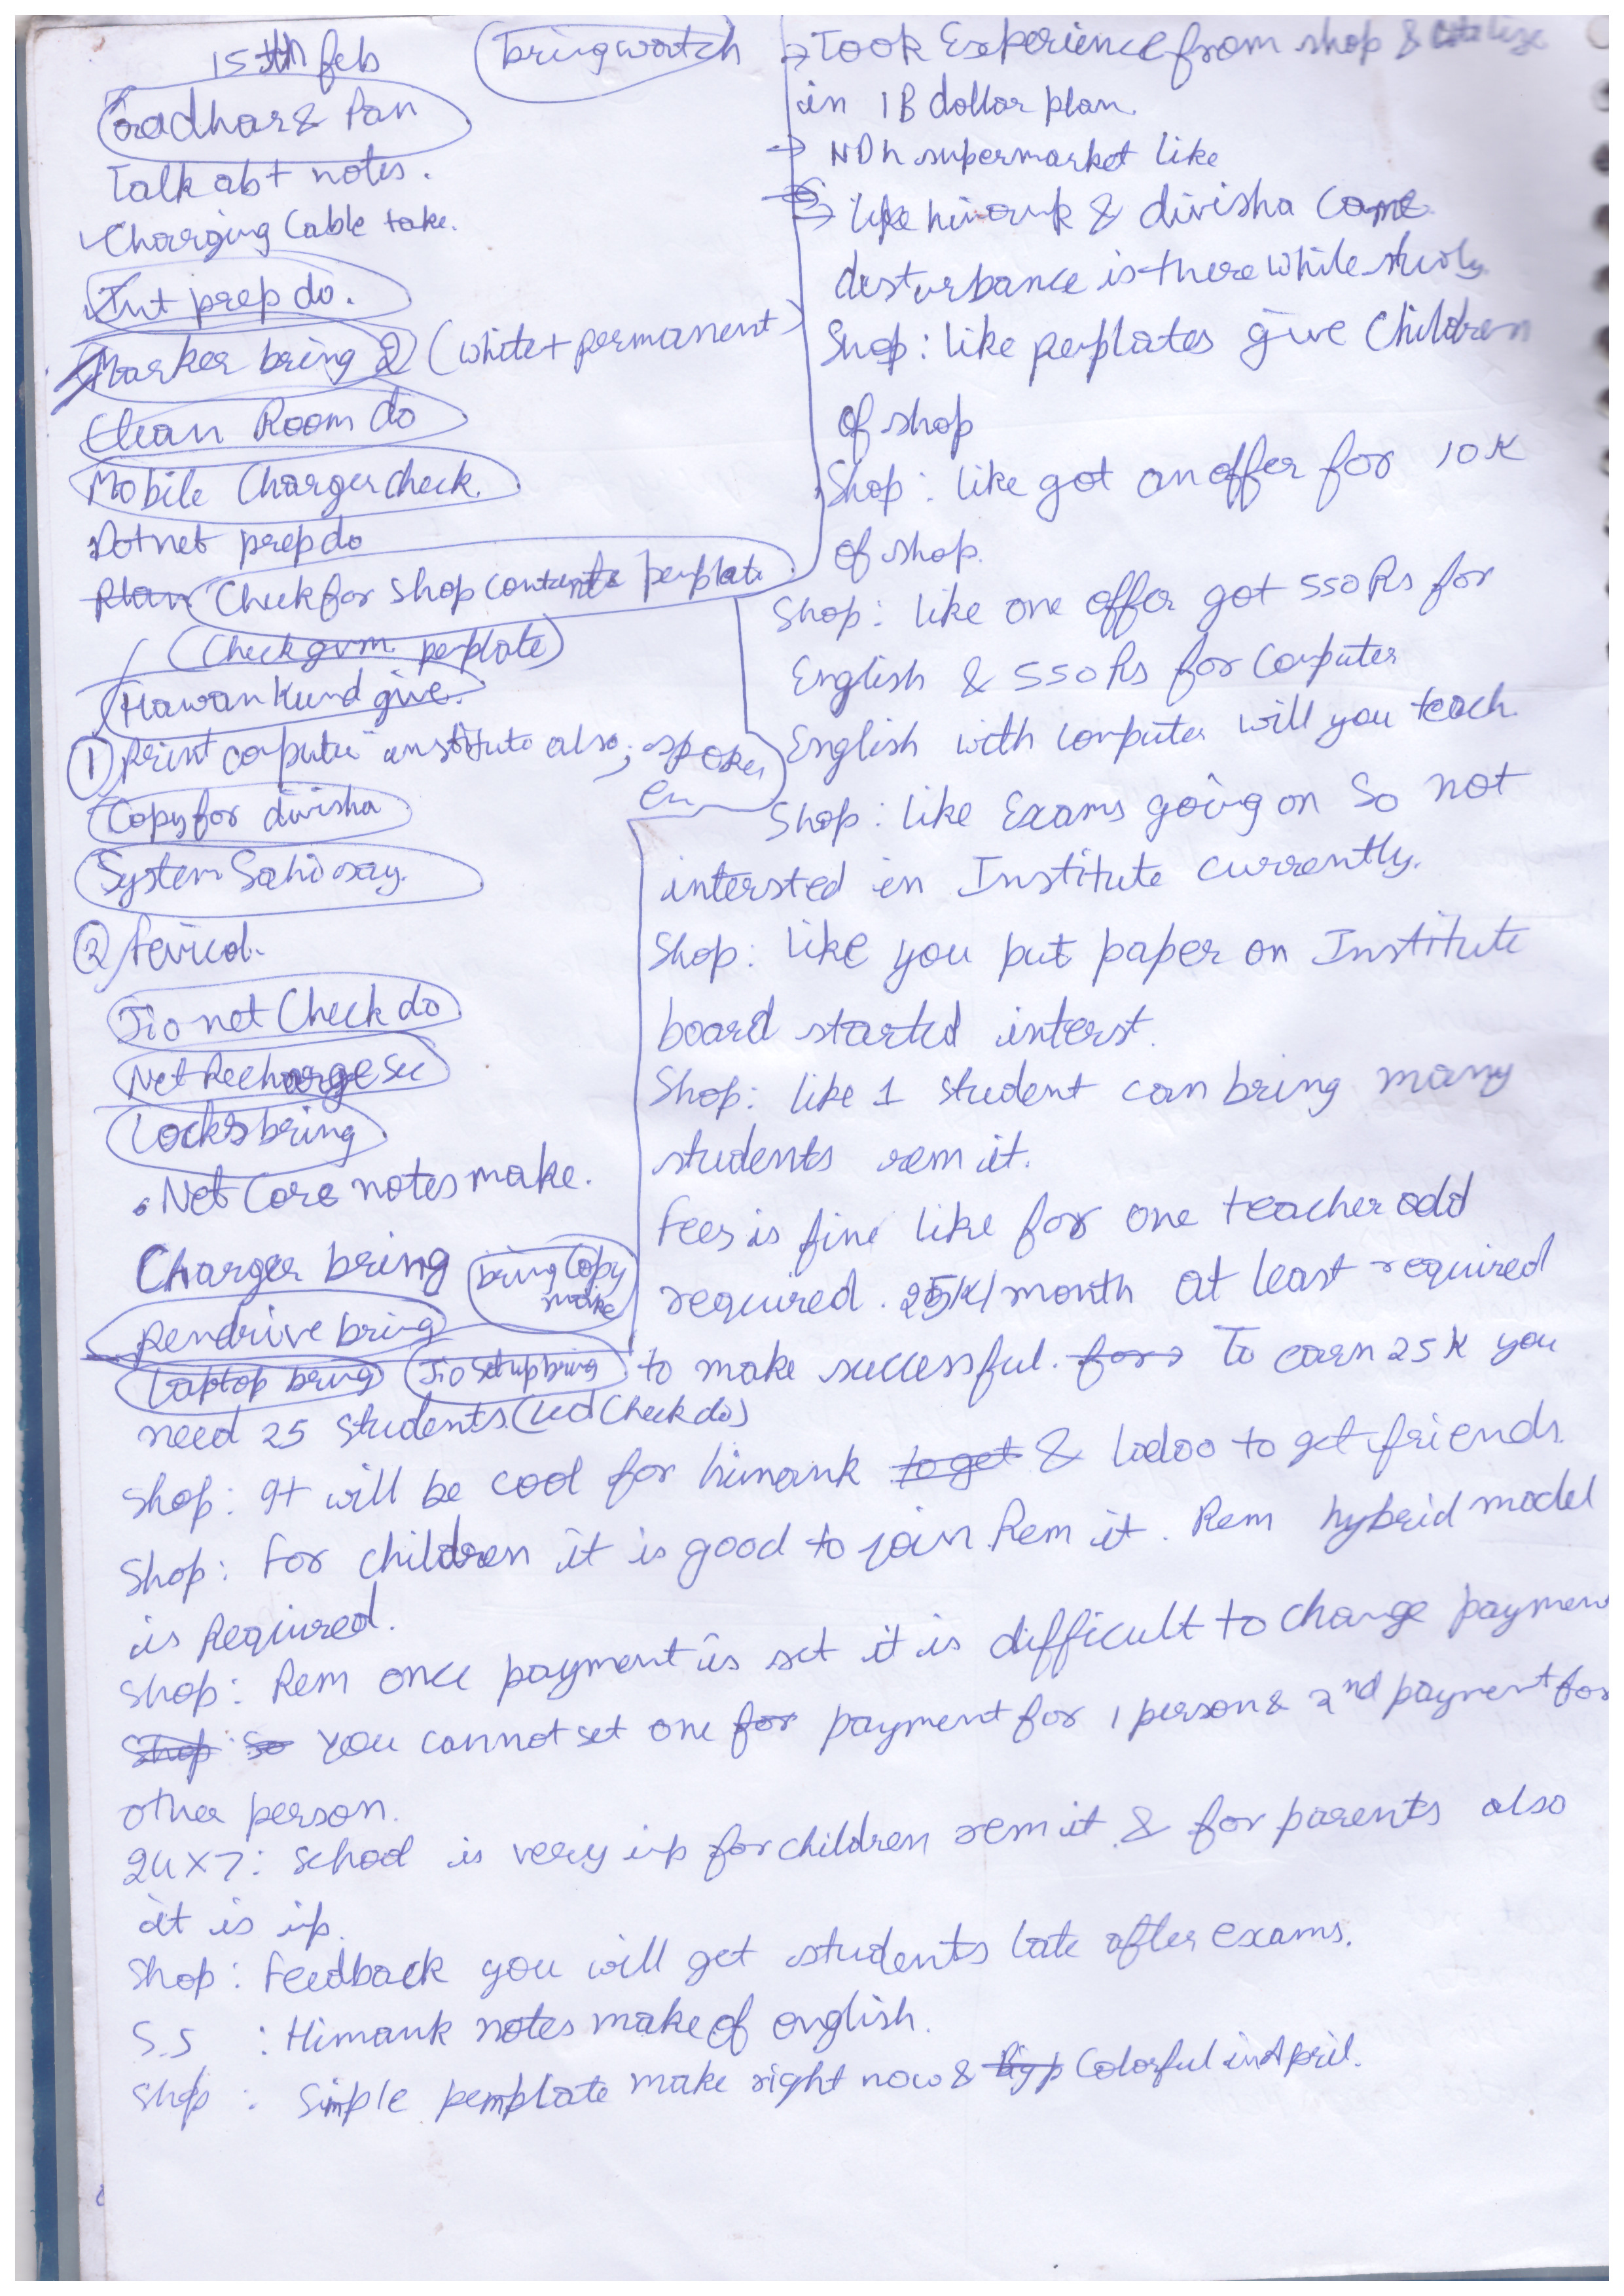 15th feb
bring watch
aadhar & Pan
Talk abt notes.
Charging Cable take.
Int prep do.
Marker bring 2 (white + permanent
Clean Room do
Mobile Charger check.
Dotnet prep do
Plan Check for shop contents pemplate
(Check gvm. pemplate)
Hawan Kund give.
① Print computer institute also, spoken
en
Copy for divisha
System Sahi say.
② fevicol.
Jio net Check do
Net Recharge See
Locks bring
. Net Core notes make.
Charger bring
bring Copy
make
Pendrive bring
Laptop bring
Jio setup bring
→ Took Experience from shop &
in 1B dollar plan.
→ NDh supermarket like
→ like himank & divisha came
disturbance is there while study
Shop : like pemplates give Children
of shop
Shop : like got an offer for 10K
of shop.
Shop : like one offer got 550 Rs for
English & 550 Rs for Computer
English with computer will you teach
Shop : like Exams going on So not
intersted in Institute currently.
Shop : like you put paper on Institute
board started interst.
Shop : like 1 student can bring many
students rem it.
Fees is fine like for one teacher add
required. 25K/month at least required
to make successful. for To earn 25K you
need 25 students (Led Check do)
Shop : It will be cool for himank to get & ladoo to get friends.
Shop : For children it is good to join Rem it. Rem hybrid model
is Required.
Shop : Rem once payment is set it is difficult to change payment
Shop : So You cannot set one for payment for 1 person & 2nd payment for
other person.
24 x 7 : School is very ip for children rem it & for parents also
it is ip.
Shop : Feedback you will get students late after exams.
S.S : Himank notes make of english.
Shop : Simple pemplate make right now & Colorful in April.